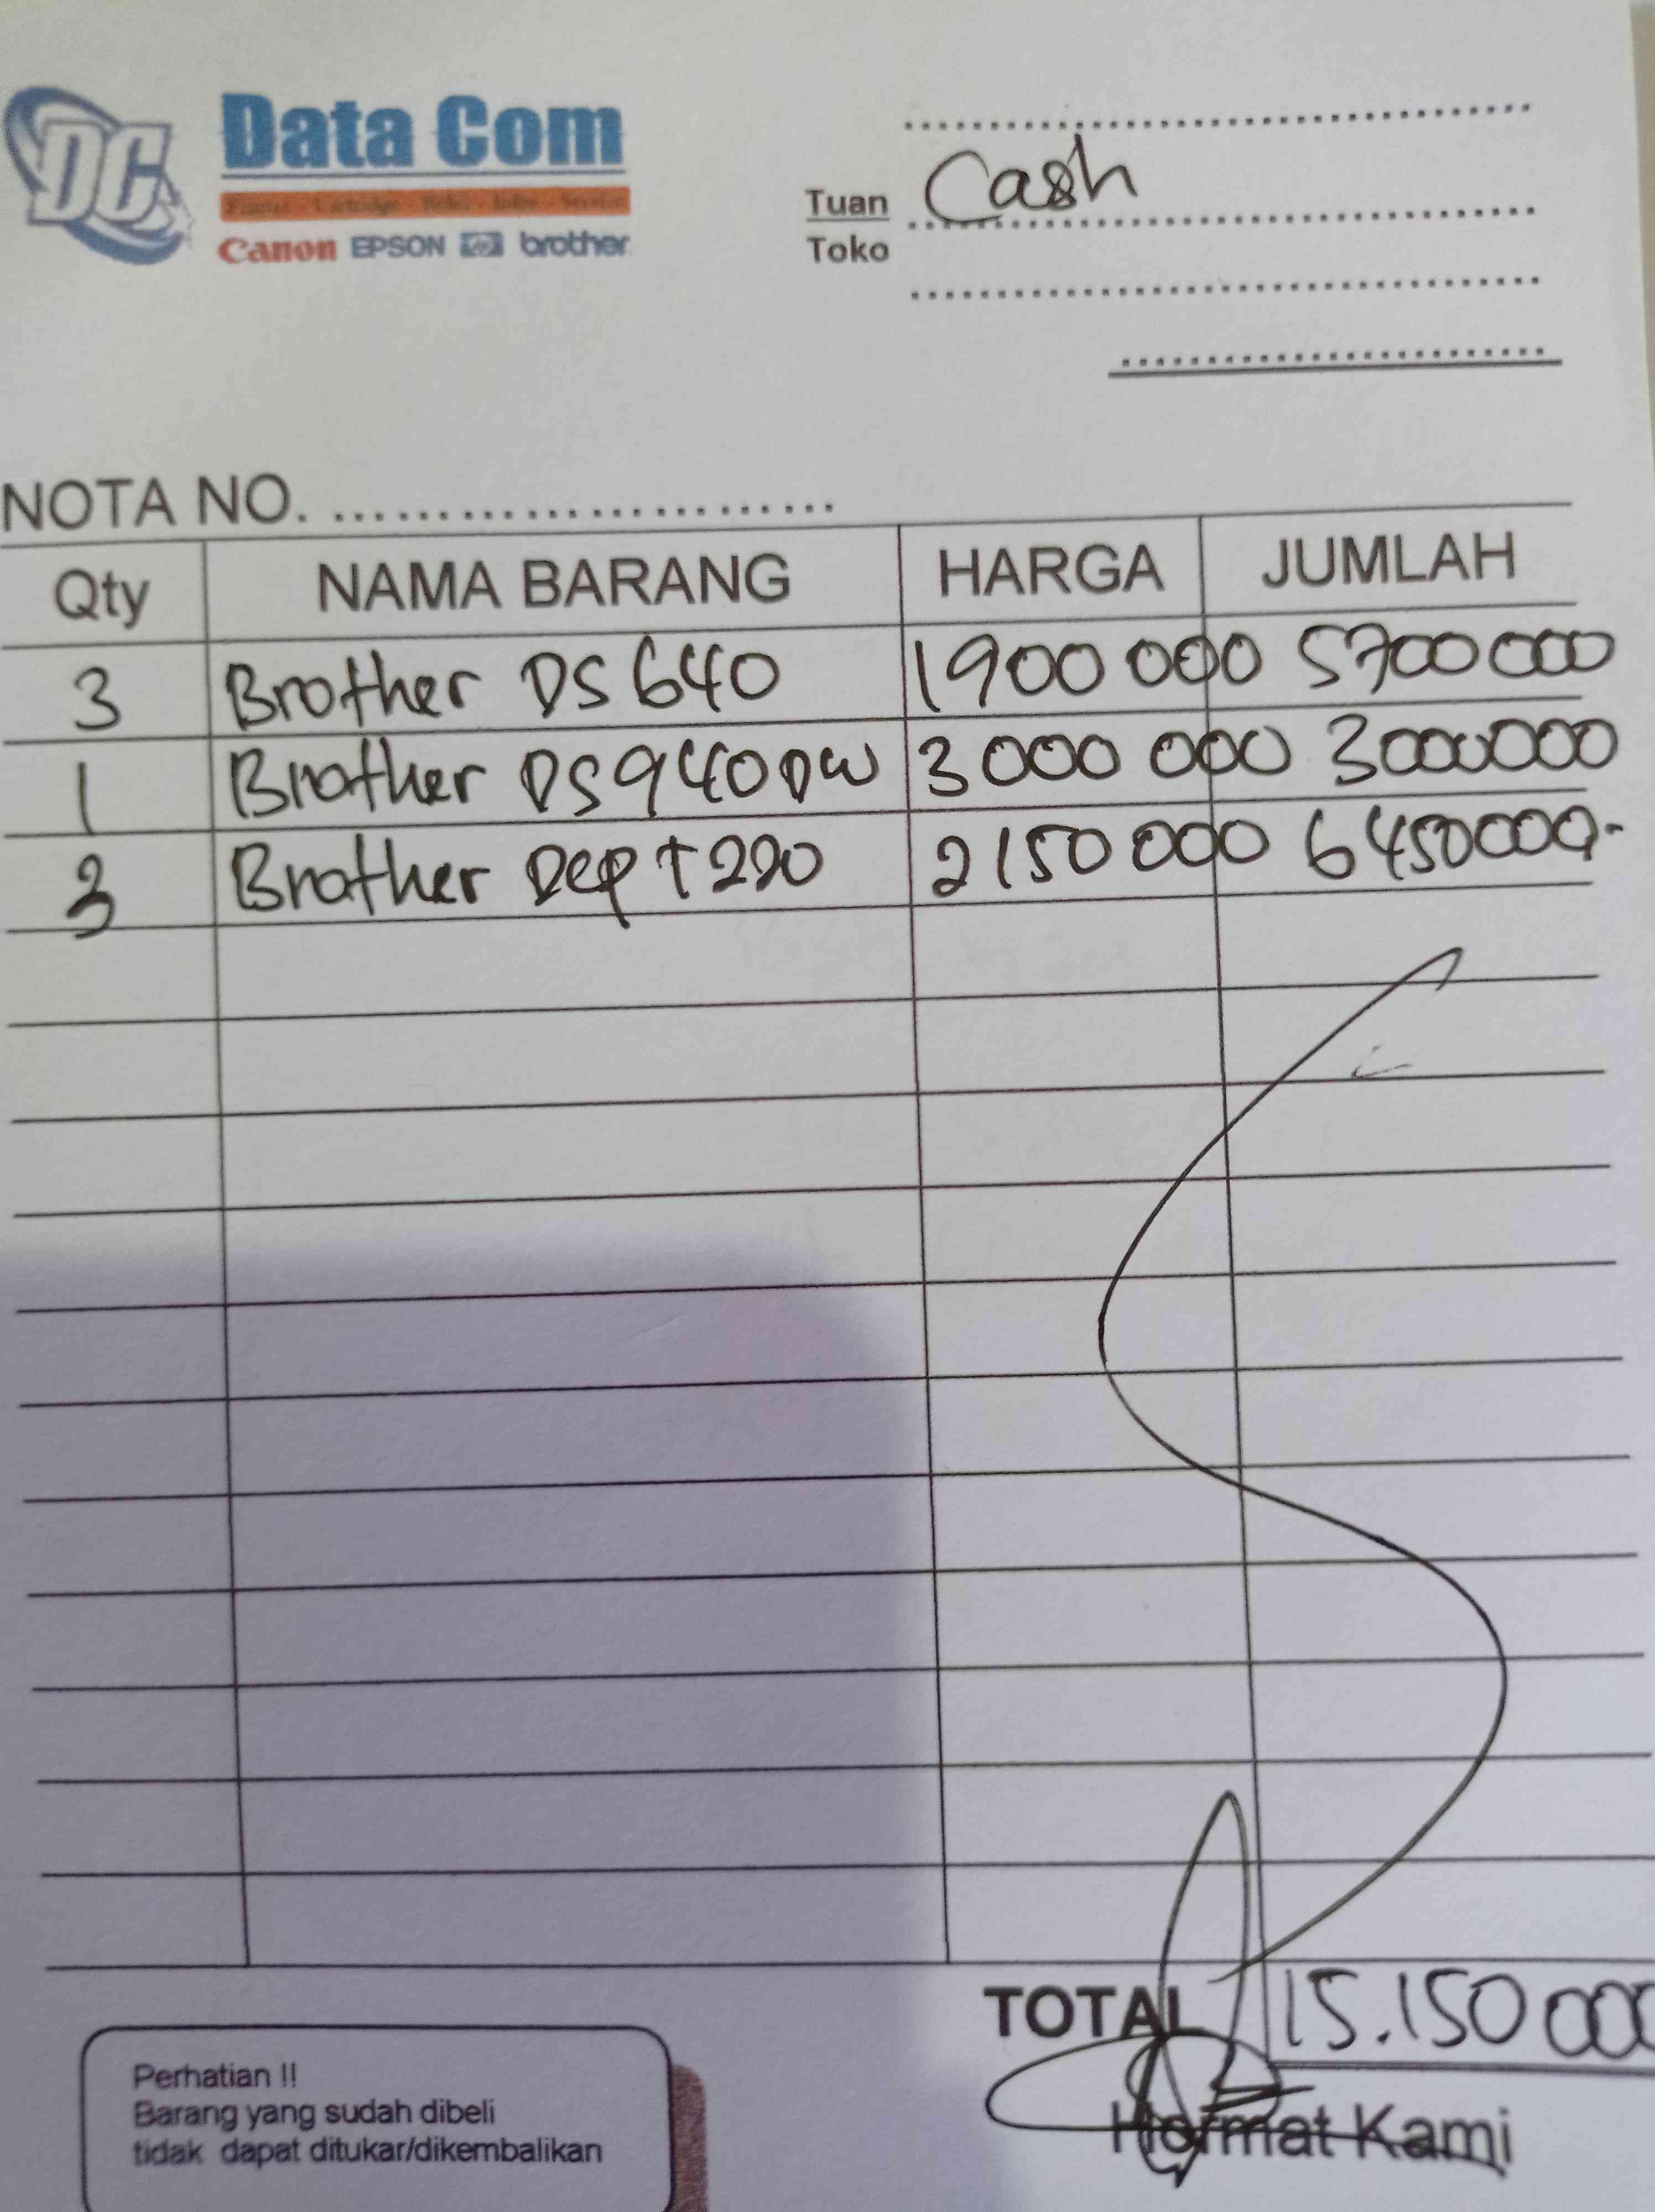 DC Data Com
Printer - Cartridge - Refil - Infus - Service
Canon EPSON hp brother
Tuan Cash
Toko
NOTA NO.
Qty NAMA BARANG HARGA JUMLAH
3 Brother DS 640 1900 000 5700 000
1 Brother DS 940 DW 3 000 000 3000000
3 Brother Dcp T220 2150 000 6450000.-
TOTAL 15.150 000
Perhatian !!
Barang yang sudah dibeli
tidak dapat ditukar/dikembalikan
Hormat Kami